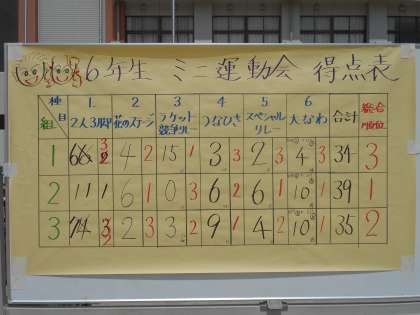 6年生 ミニ運動会 得点表
種目 組 1 2人3脚 2 花のステージ 3 ラケット競争リレー 4 つなひき 5 スペシャルリレー 6 大なわ 合計 総合順位
1 4 2 15 1 3 3 2 3 4 3 34 3
2 11 1 6 1 0 3 6 2 6 1 10 1 39 1
3 2 3 3 2 9 1 4 2 10 1 35 2